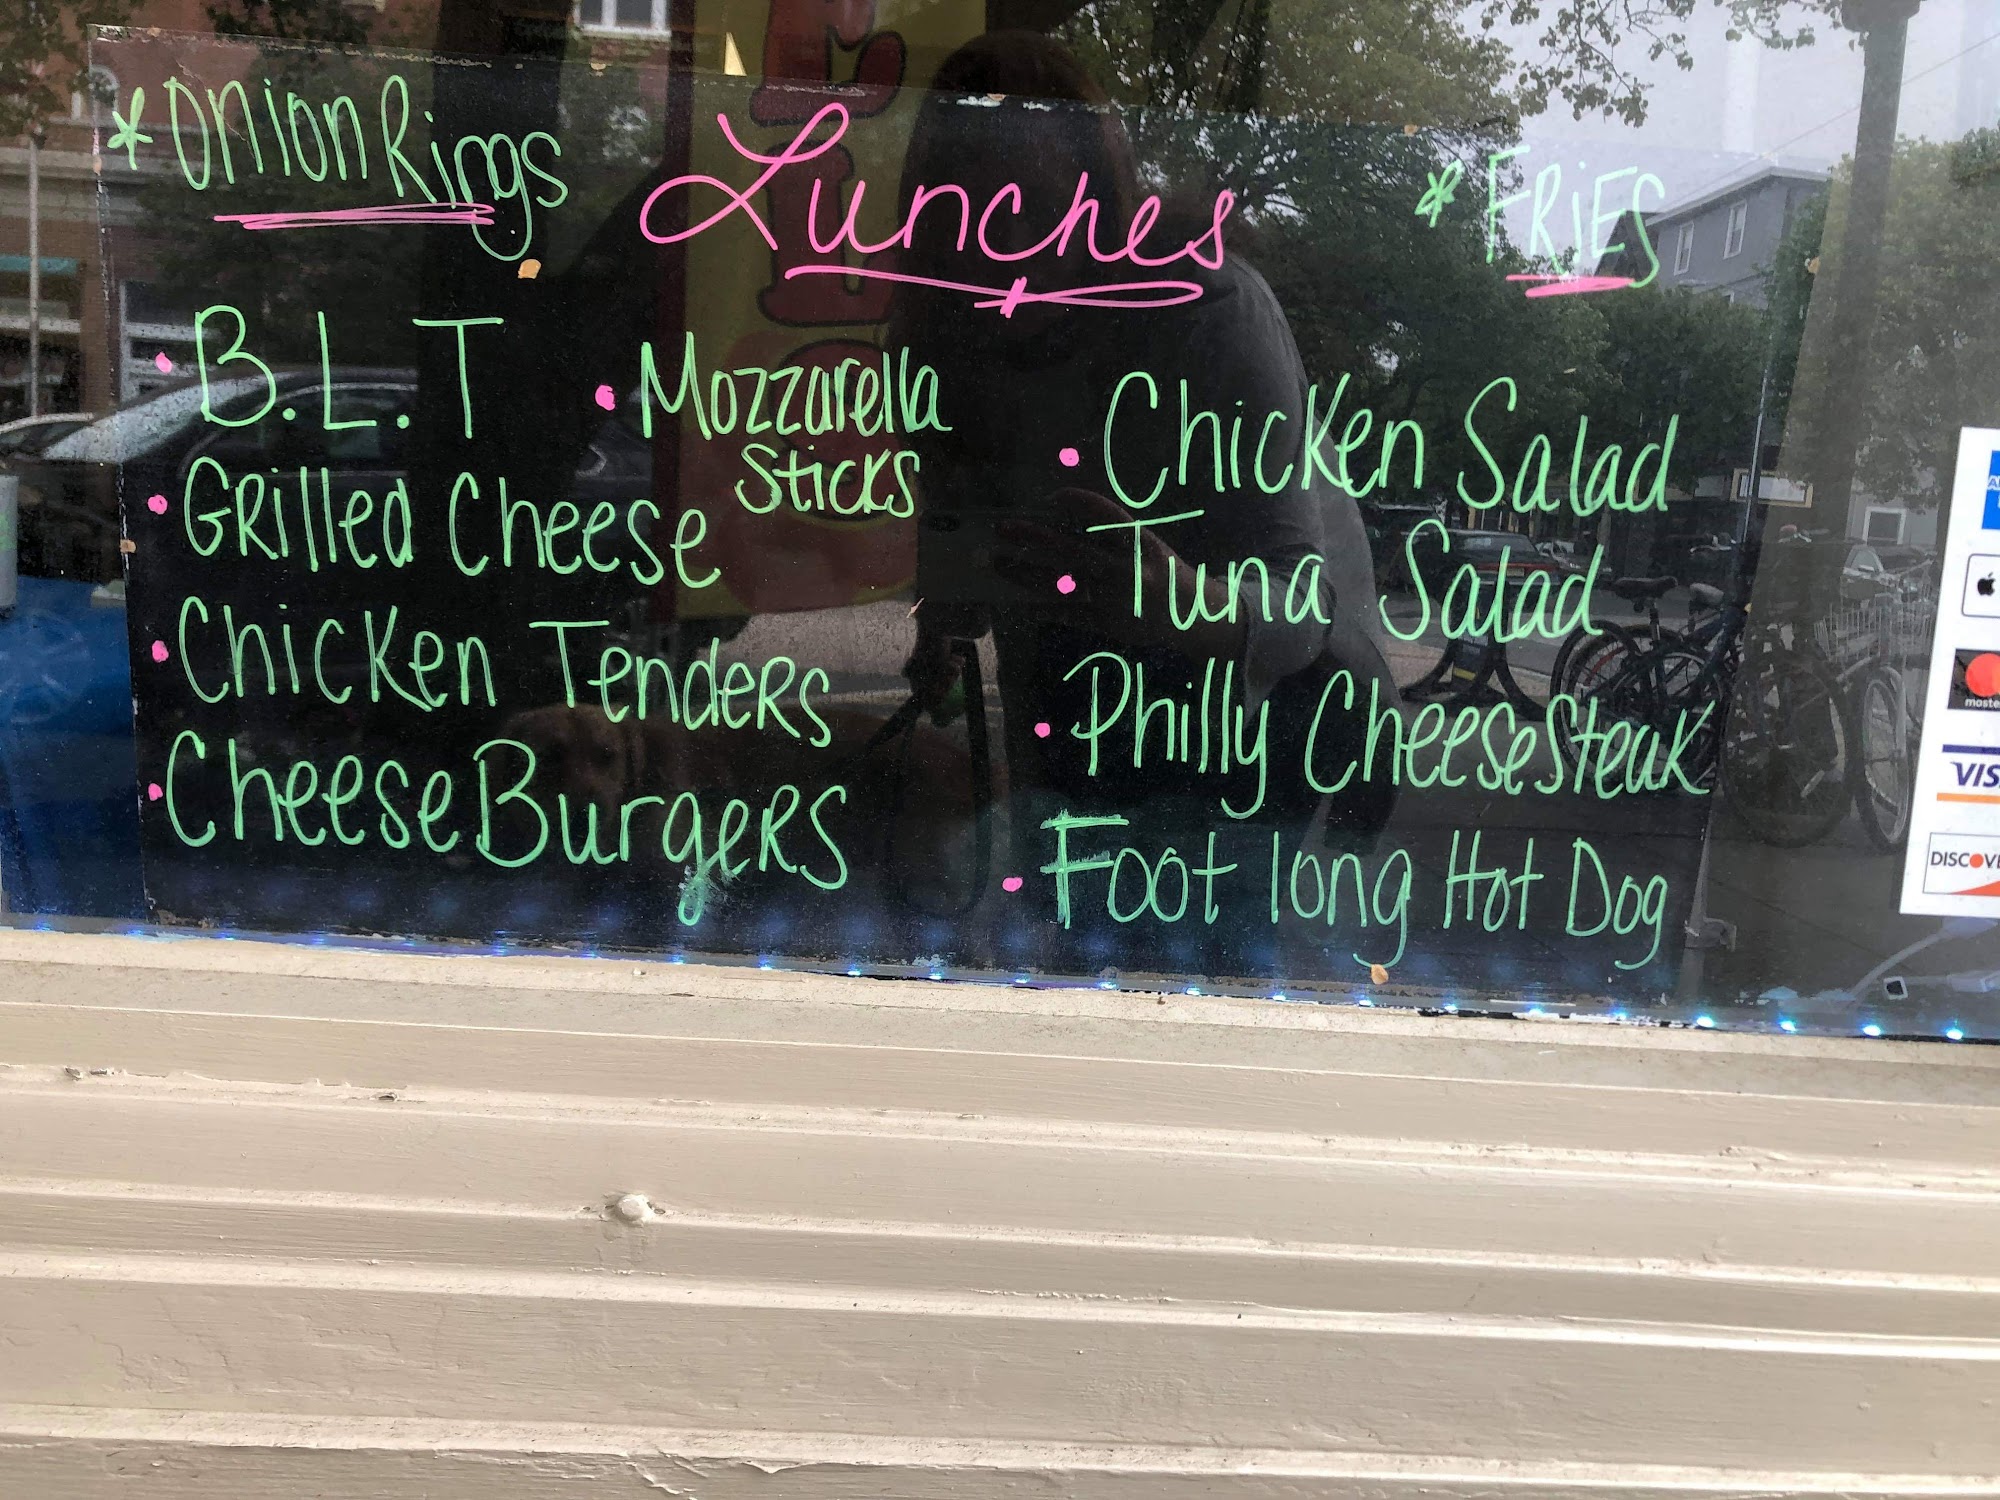 * Onion Rings
Lunches
* FRiES
• B.L.T
• Mozzarella
Sticks
• Grilled Cheese
• Chicken Tenders
• Cheese Burgers
• Chicken Salad
• Tuna Salad
• Philly Cheesesteak
• Foot long Hot Dog
VIS
DISCOVE